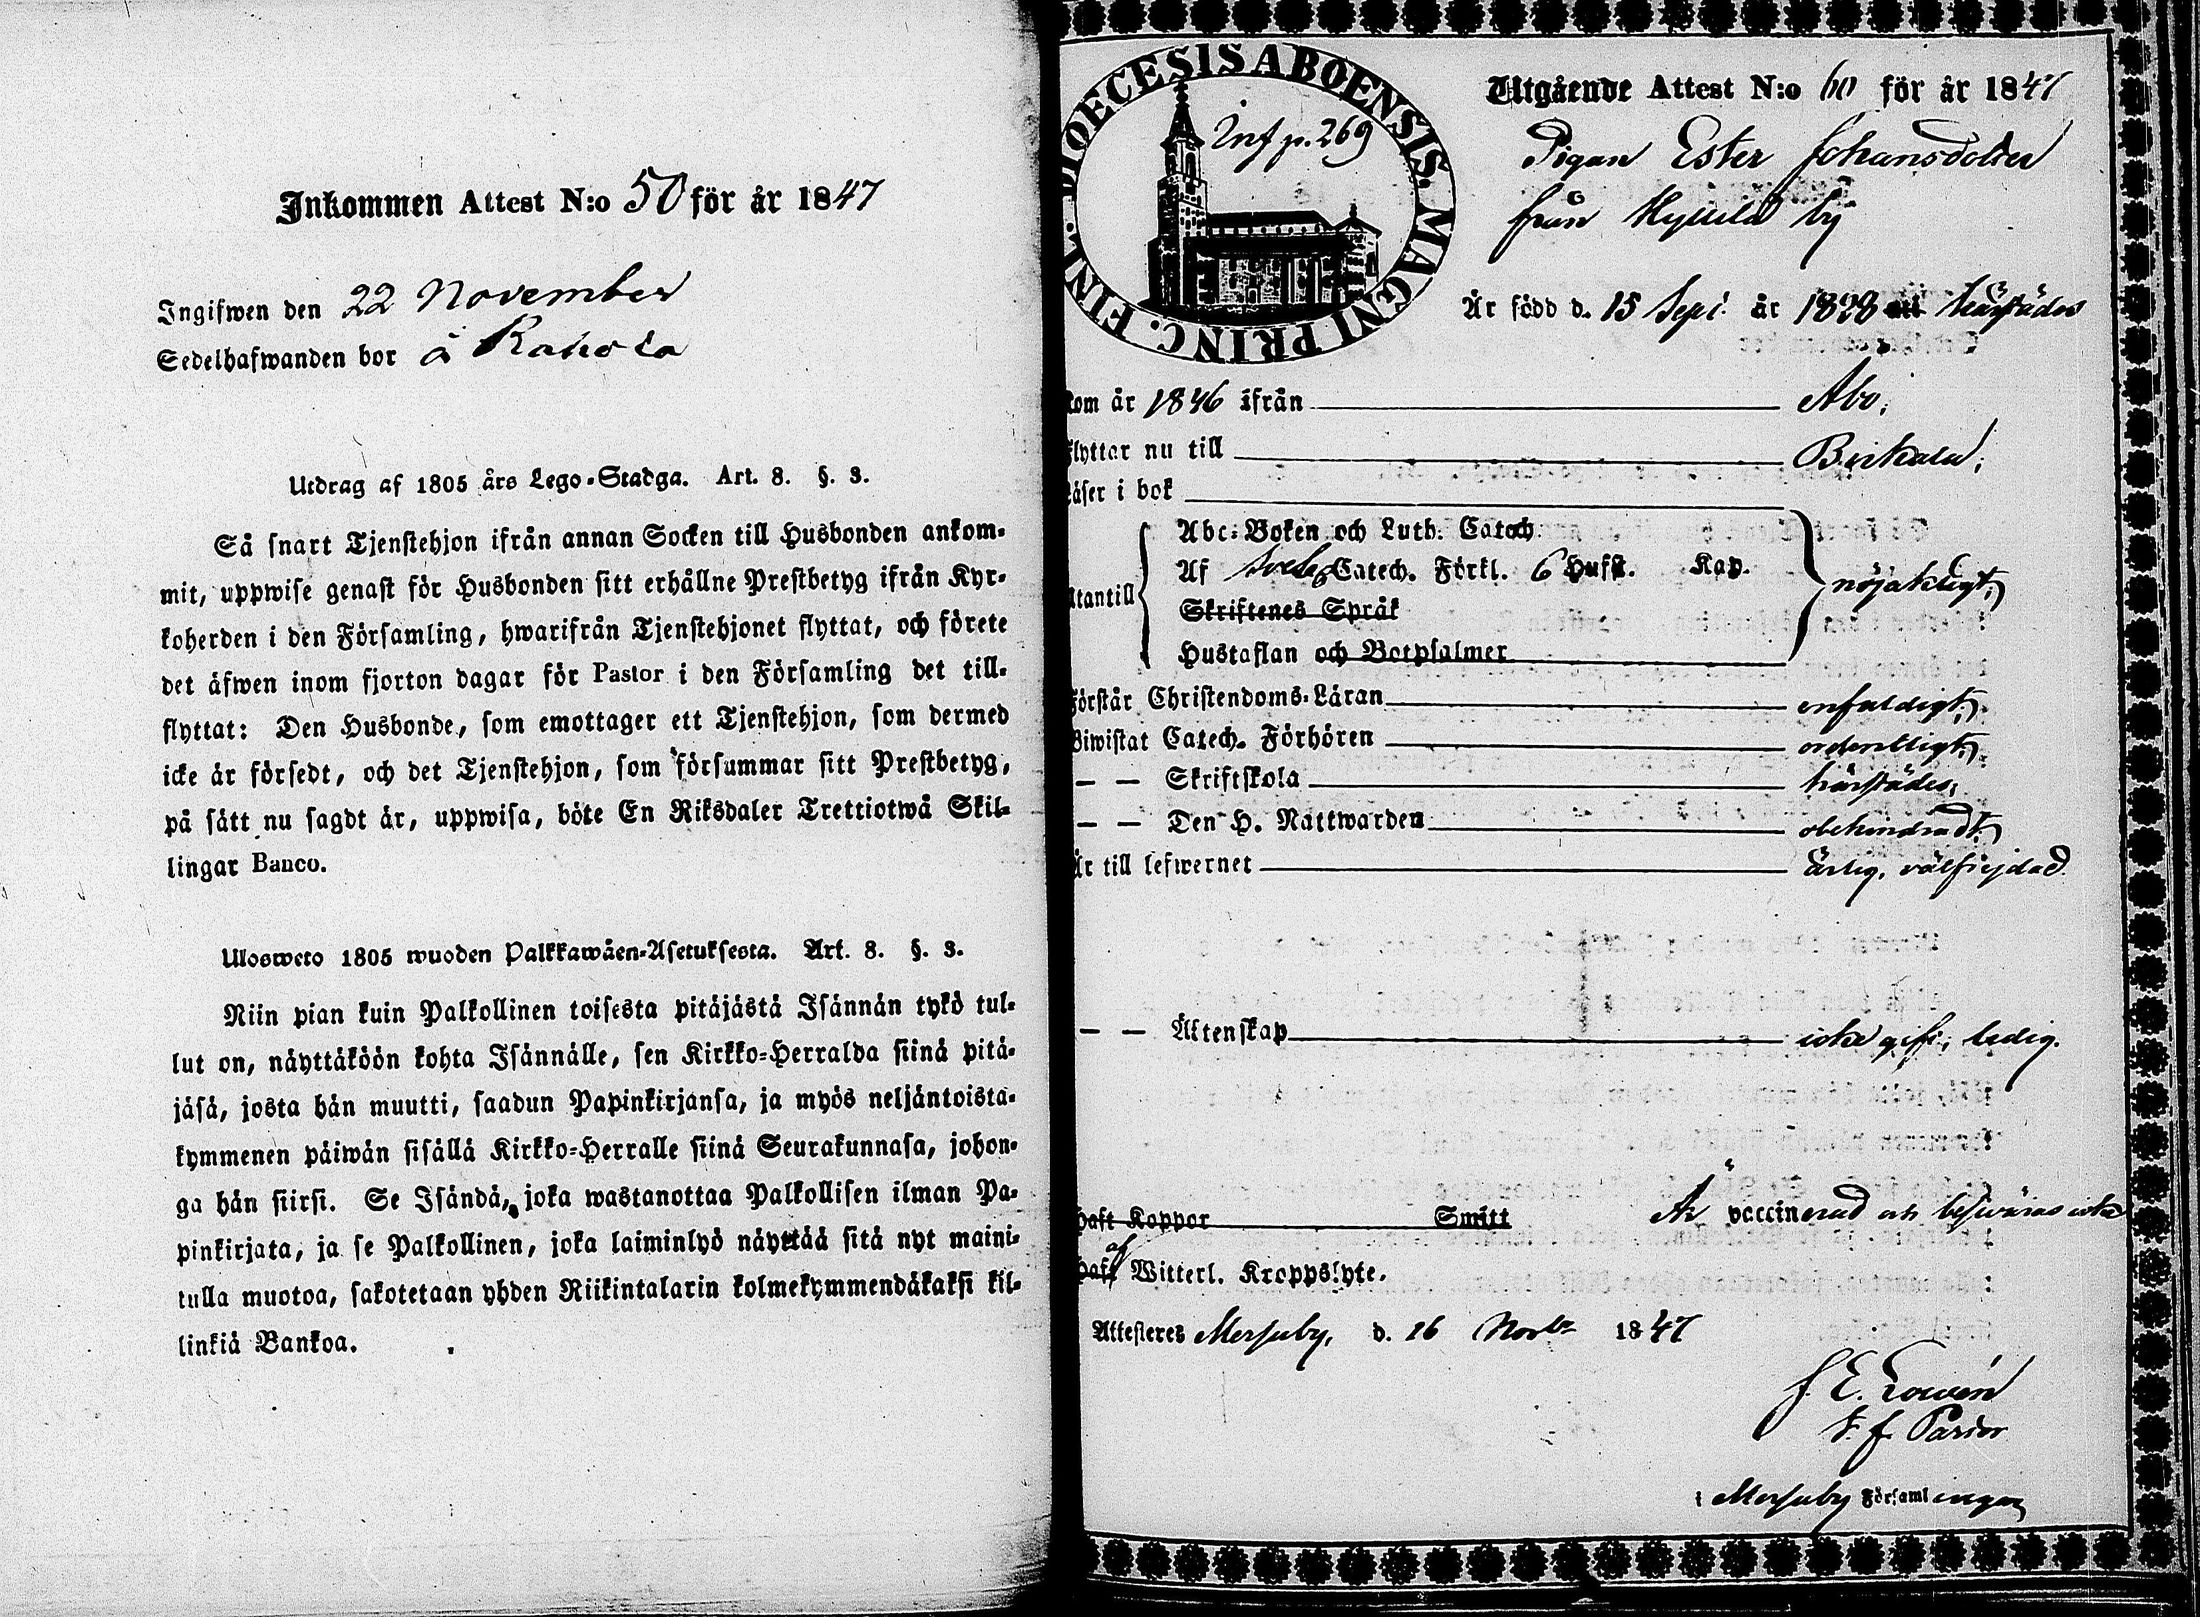 Inkommen Attest N:o 50 för år 1847
Ingifwen den 22 November
Sedelhafwanden bor å Rahola
Utdrag af 1805 års Lego-Stadga. Art. 8. §. 3.
Så snart Tjenstehjon ifrån annan Socken till Husbonden ankom-
mit, uppwise genast för Husbonden sitt erhållne Prestbetyg ifrån Kyr-
koherden i den Församling, hwarifrån Tjenstehjonet flyttat, och förete
det äfwen inom fjorton dagar för Pastor i den Församling det till-
flyttat: Den Husbonde, som emottager ett Tjenstehjon, som dermed
icke är försedt, och det Tjenstehjon, som försummar sitt Prestbetyg,
på sätt nu sagdt är, uppwisa, böte En Riksdaler Trettiotwå Skil-
lingar Banco.
Ulosweto 1805 wuoden Palkkawäen-Asetuksesta. Art. 8. §. 3.
Niin pian kuin Palkollinen toisesta pitäjästä Isännän tykö tul-
lut on, näyttäköön kohta Isännälle, sen Kirkko-Herralda siinä pitä-
jäsä, josta hän muutti, saadun Papinkirjansa, ja myös neljäntoista-
kymmenen päiwän sisällä Kirkko-Herralle siinä Seurakunnasa, johon-
ga hän siirsi. Se Isändä, joka wastanottaa Palkollisen ilman Pa-
pinkirjata, ja se Palkollinen, joka laiminlyö näyttää sitä nyt maini-
tulla muotoa, sakotetaan yhden Riikintalarin kolmekymmendäkaksi kil-
linkiä Bankoa.
DIOECESIS ABOENSIS. MAGNI PRINC. FINL.
Inf p. 269
Utgående Attest N:o 60 för år 1847
Pigan Ester Johansdotter
från by
Är född d. 15 Sept. år 1828 härstädes
kom år 1846 ifrån Åbo;
flyttar nu till Birkala;
Läser i bok
Abc-Boken och Luth. Catech.
Utantill Af Sveb. Catech. Förkl. 6 Hufst. Kap. nöjaktligt;
Skriftenes Språk
Hustaflan och Botpsalmer
Förstår Christendoms-Läran enfaldigt;
Biwistat Catech. Förhören ordentligt;
— — Skriftskola härstädes;
— — Den H. Nattwarden obehindradt;
Är till lefwernet ärlig, välfrejdad.
— — Äktenskap icke gift, ledig.
Haft Koppor Smitt Är vaccinerad och besväras icke
Haft af Witterl. Kroppslyte.
Attesteres Merimasku, d. 16 Novbr 1847
J. E. Lowén
V. f. Pastor
i Församlingar